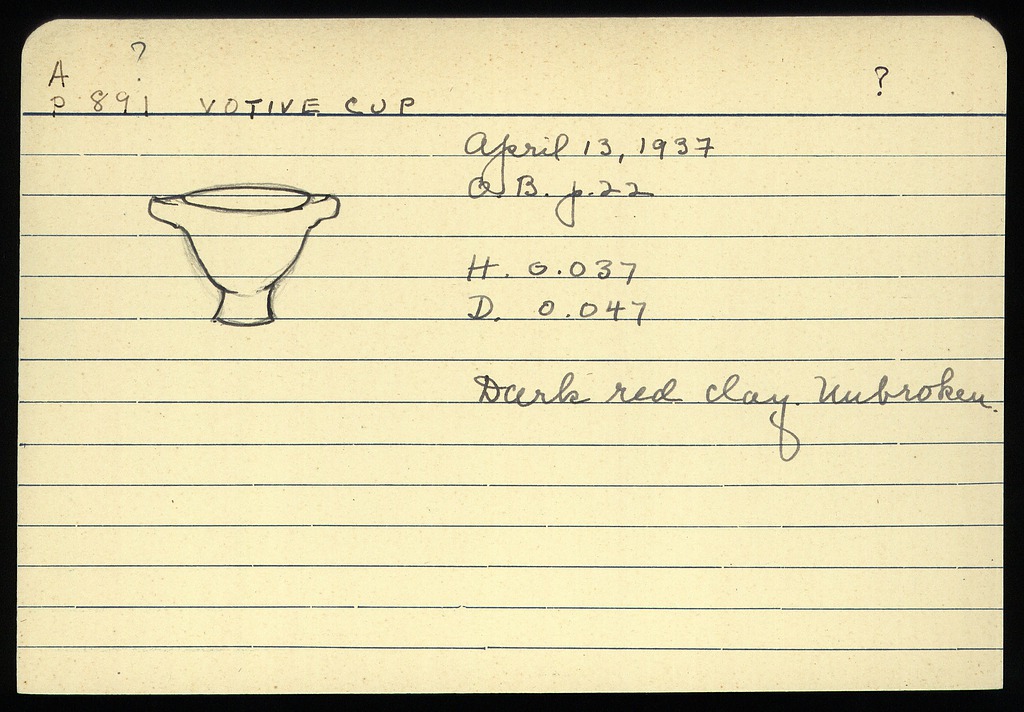 ?
A ?
P 891 VOTIVE CUP
April 13, 1937
O.B. p.22
H. 0.037
D. 0.047
Dark red clay. Unbroken.